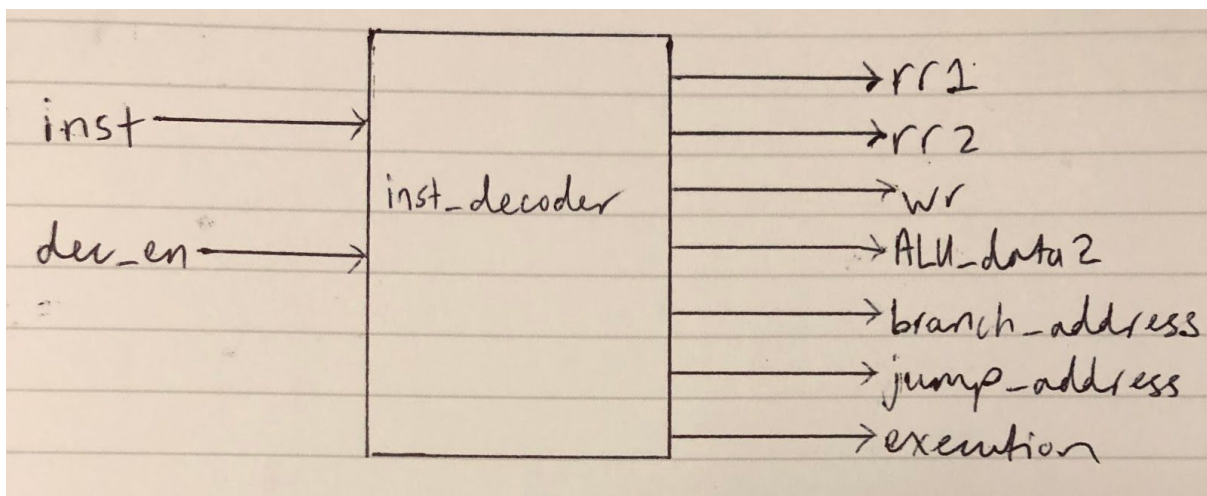 inst
dec_en
inst_decoder
rr1
rr2
wr
ALU_data2
branch_address
jump_address
execution